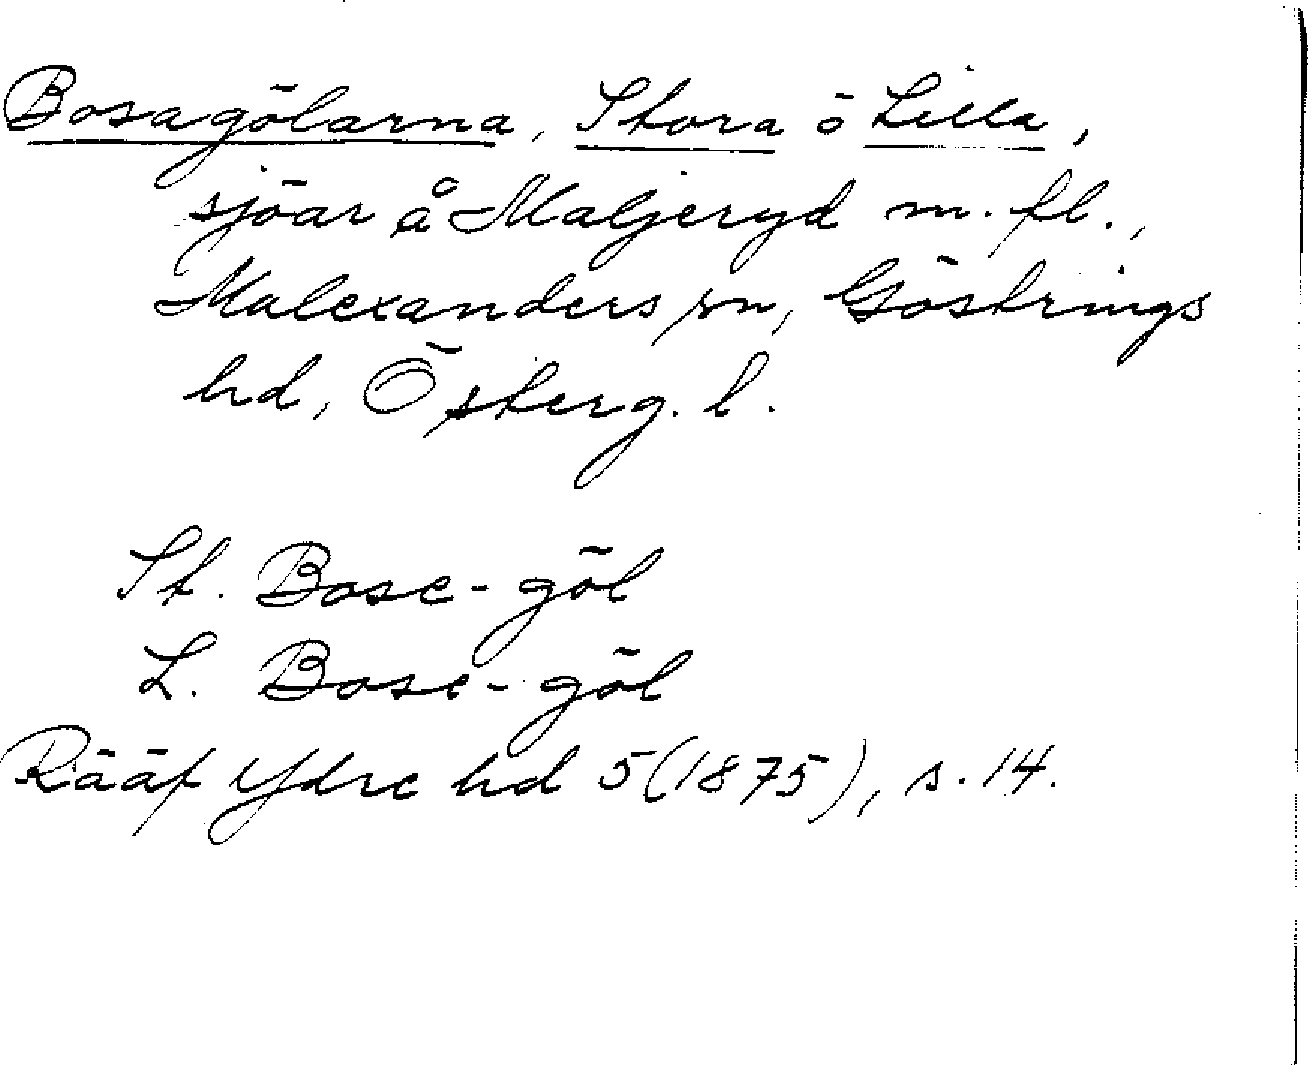 Bosagölarna, Stora ö Lilla,
sjöar å Maljeryd m. fl.,
Malexanders sn, Göstrings
hd, Österg. l.
St. Bose-göl
L. Bose-göl
Rääf Ydre hd 5 (1875), s. 14.